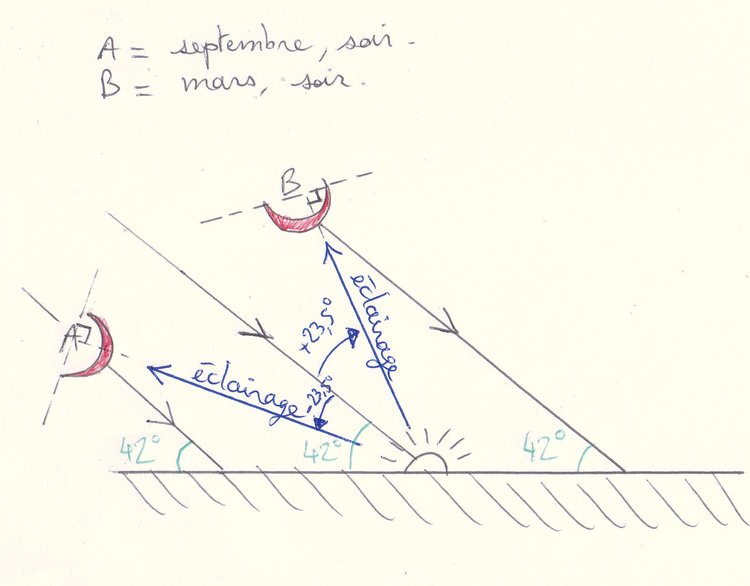 A = septembre, soir.
B = mars, soir.
B
A
éclairage
+23,5°
éclairage
-23,5°
42°
42°
42°